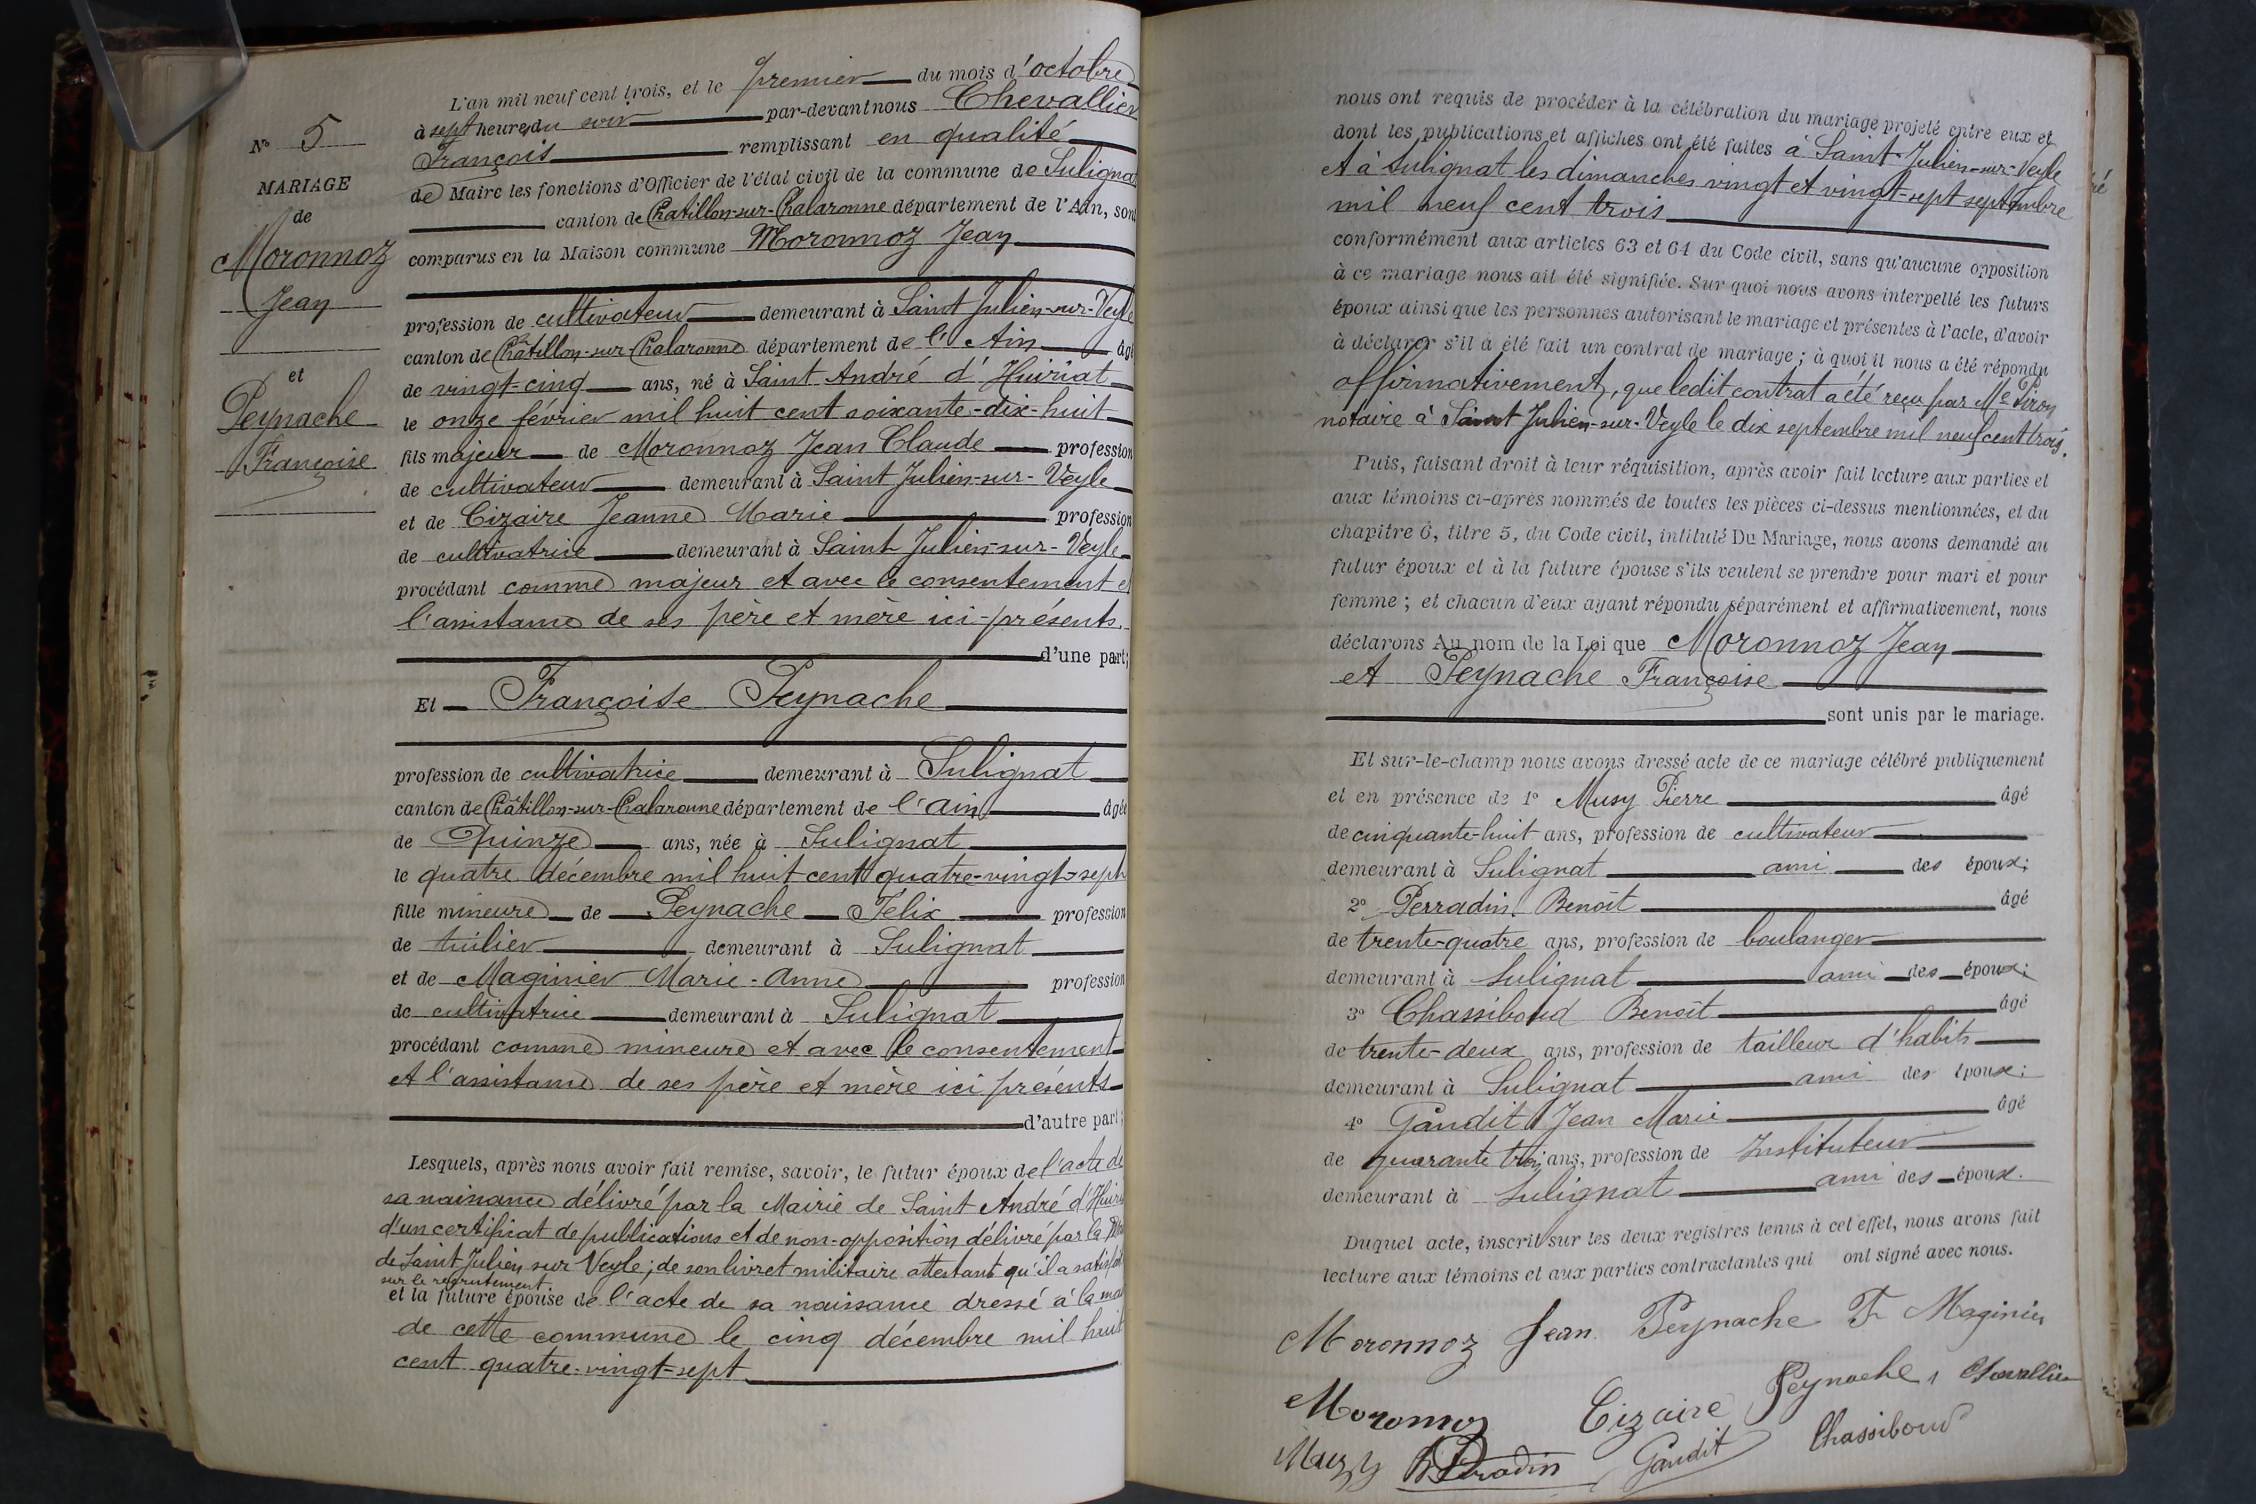 N° 5
MARIAGE
de
Moronnoz
Jean
et
Peynache
Françoise
L'an mil neuf cent trois, et le premier du mois d'octobre
à sept heures du soir par-devant nous Chevallier
François remplissant en qualité
de Maire les fonctions d'Officier de l'état civil de la commune de Sulignat
canton de Chatillon-sur-Chalaronne département de l'Ain, sont
comparus en la Maison commune Moronnoz Jean
profession de cultivateur demeurant à Saint Julien-sur-Veyle
canton de Châtillon-sur-Chalaronne département de l'Ain âgé
de vingt-cinq ans, né à Saint André d'Huiriat
le onze février mil huit cent soixante-dix-huit
fils majeur de Moronnoz Jean Claude profession
de cultivateur demeurant à Saint Julien-sur-Veyle
et de Cizaire Jeanne Marie profession
de cultivatrice demeurant à Saint Julien-sur-Veyle
procédant comme majeur et avec le consentement et
l'assistance de ses père et mère ici-présents.
d'une part;
Et Françoise Peynache
profession de cultivatrice demeurant à Sulignat
canton de Châtillon-sur-Chalaronne département de l'ain âgée
de Quinze ans, née à Sulignat
le quatre décembre mil huit cent quatre-vingt-sept
fille mineure de Peynache Félix profession
de tuilier demeurant à Sulignat
et de Maginier Marie-Anne profession
de cultivatrice demeurant à Sulignat
procédant comme mineure et avec le consentement
et l'assistance de ses père et mère ici présents
d'autre part;
Lesquels, après nous avoir fait remise, savoir, le futur époux de l'acte de
sa naissance délivré par la Mairie de Saint André d'Huiriat
d'un certificat de publications et de non-opposition délivré par la
de Saint Julien sur Veyle; de son livret militaire attestant qu'il a satisfait
sur le recrutement.
et la future épouse de l'acte de sa naissance dressé à la
de cette commune le cinq décembre mil huit
cent quatre-vingt-sept
nous ont requis de procéder à la célébration du mariage projeté entre eux et
dont les publications et affiches ont été faites à Saint-Julien-sur-Veyle
et à Sulignat les dimanches vingt et vingt-sept septembre
mil neuf cent trois
conformément aux articles 63 et 64 du Code civil, sans qu'aucune opposition
à ce mariage nous ait été signifiée. Sur quoi nous avons interpellé les futurs
époux ainsi que les personnes autorisant le mariage et présentes à l'acte, d'avoir
à déclarer s'il a été fait un contrat de mariage; à quoi il nous a été répondu
affirmativement, que ledit contrat a été reçu par Me Piron
notaire à Saint Julien-sur-Veyle le dix septembre mil neuf cent trois.
Puis, faisant droit à leur réquisition, après avoir fait lecture aux parties et
aux témoins ci-après nommés de toutes les pièces ci-dessus mentionnées, et du
chapitre 6, titre 5, du Code civil, intitulé Du Mariage, nous avons demandé au
futur époux et à la future épouse s'ils veulent se prendre pour mari et pour
femme; et chacun d'eux ayant répondu séparément et affirmativement, nous
déclarons Au nom de la Loi que Moronnoz Jean
et Peynache Françoise
sont unis par le mariage.
Et sur-le-champ nous avons dressé acte de ce mariage célébré publiquement
et en présence de 1° Musy Pierre âgé
de cinquante-huit ans, profession de cultivateur
demeurant à Sulignat ami des époux;
2° Perradin Benoît âgé
de trente-quatre ans, profession de boulanger
demeurant à Sulignat ami des époux;
3° Chassiboud Benoît âgé
de trente-deux ans, profession de tailleur d'habits
demeurant à Sulignat ami des époux;
4° Gaudit Jean Marie âgé
de quarante trois ans, profession de Instituteur
demeurant à Sulignat ami des époux.
Duquel acte, inscrit sur les deux registres tenus à cet effet, nous avons fait
lecture aux témoins et aux parties contractantes qui ont signé avec nous.
Moronnoz Jean Peynache Fr Maginier
Moronnoz Cizaire Peynache, Chevallier
Musy B Perradin Gaudit Chassiboud